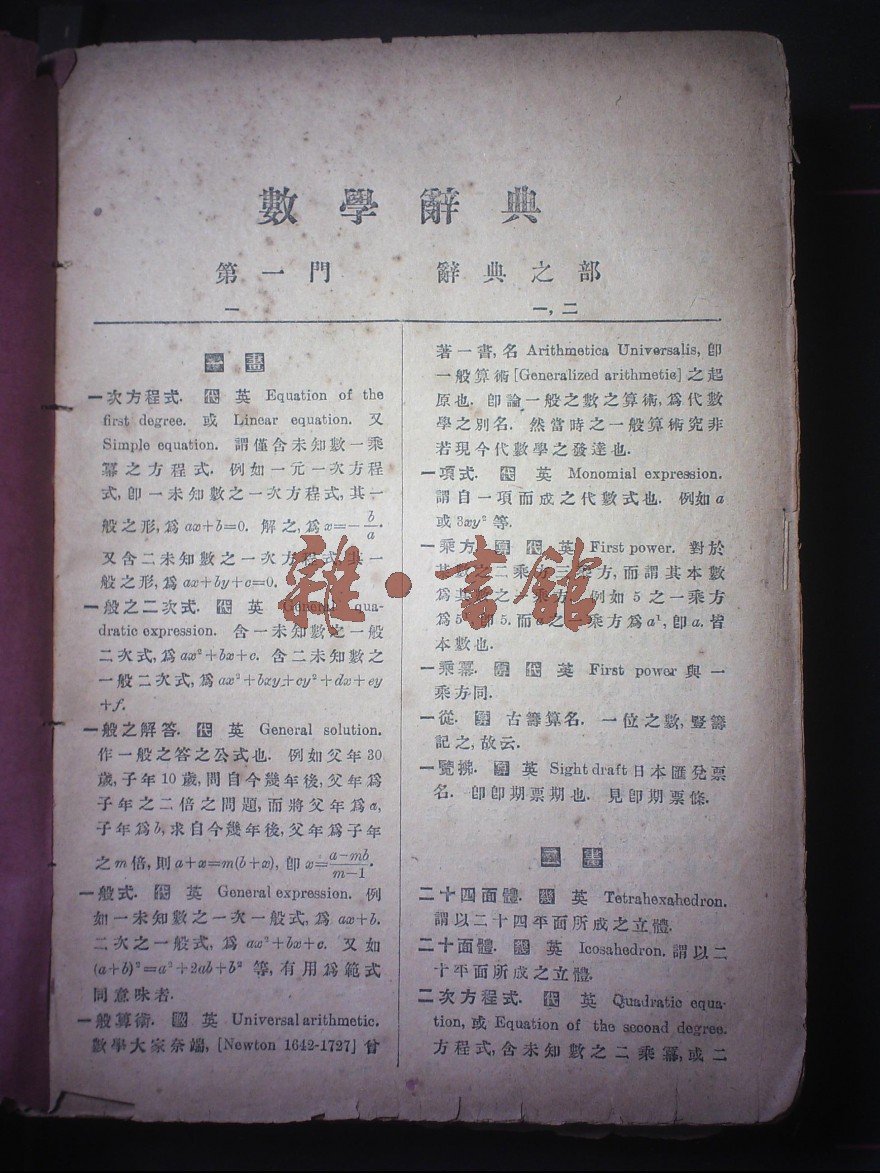 數學辭典
第一門 辭典之部
一 一,二
畫
一次方程式. 代 英 Equation of the
first degree. 或 Linear equation. 又
Simple equation. 謂僅含未知數一乘
冪之方程式. 例如一元一次方程
式, 卽一未知數之一次方程式, 其一
般之形, 爲 ax+b=0. 解之, 爲 x=-b/a.
又含二未知數之一次方程式, 其一
般之形, 爲 ax+by+c=0.
一般之二次式. 代 英 General qua-
dratic expression. 含一未知數之一般
二次式, 爲 ax²+bx+c. 含二未知數之
一般二次式, 爲 ax²+bxy+cy²+dx+ey
+f.
一般之解答. 代 英 General solution.
作一般之答之公式也. 例如父年30
歲, 子年10歲, 問自今幾年後, 父年爲
子年之二倍之問題, 而將父年爲a,
子年爲b, 求自今幾年後, 父年爲子年
之m倍, 則 a+x=m(b+x), 卽 x=(a-mb)/(m-1).
一般式. 代 英 General expression. 例
如一未知數之一次一般式, 爲 ax+b.
二次之一般式, 爲 ax²+bx+c. 又如
(a+b)²=a²+2ab+b² 等, 有用爲範式
同意味者.
一般算術. 英 Universal arithmetic.
數學大家奈端, [Newton 1642-1727] 曾
著一書, 名 Arithmetica Universalis, 卽
一般算術 [Generalized arithmetic] 之起
原也. 卽論一般之數之算術, 爲代數
學之別名. 然當時之一般算術究非
若現今代數學之發達也.
一項式. 代 英 Monomial expression.
謂自一項而成之代數式也. 例如 a
或 3xy² 等.
一乘方. 算 代 英 First power. 對於
某數之二乘方三乘方, 而謂其本數
爲其數之一乘方. 例如 5 之一乘方
爲 5¹, 卽 5. 而 a 之一乘方爲 a¹, 卽 a. 皆
本數也.
一乘冪. 算 代 英 First power 與一
乘方同.
一從. 算 古籌算名. 一位之數, 豎籌
記之, 故云.
一覽拂. 算 英 Sight draft 日本匯兌票
名. 卽卽期票期也. 見卽期票條.
二畫
二十四面體. 幾 英 Tetrahexahedron.
謂以二十四平面所成之立體.
二十面體. 幾 英 Icosahedron. 謂以二
十平面所成之立體.
二次方程式. 代 英 Quadratic equa-
tion, 或 Equation of the second degree.
方程式, 含未知數之二乘冪, 或二
雜·書館